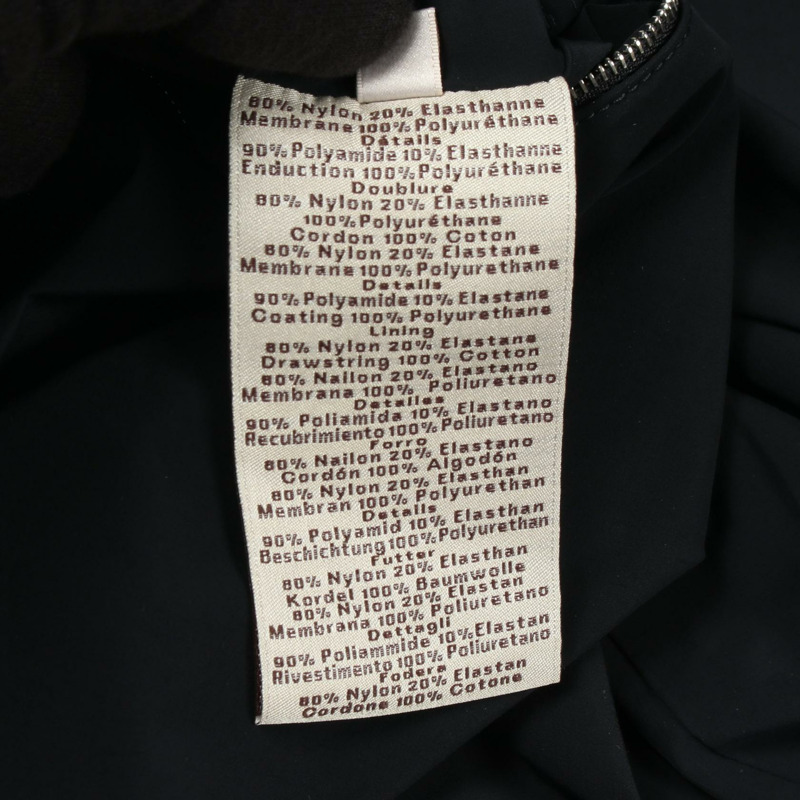 80% Nylon 20% Elasthanne
Membrane 100% Polyuréthane
Détails
90% Polyamide 10% Elasthanne
Enduction 100% Polyuréthane
Doublure
80% Nylon 20% Elasthanne
100% Polyuréthane
Cordon 100% Coton
80% Nylon 20% Elastane
Membrane 100% Polyurethane
Details
90% Polyamide 10% Elastane
Coating 100% Polyurethane
Lining
80% Nylon 20% Elastane
Drawstring 100% Cotton
80% Nailon 20% Elastano
Membrana 100% Poliuretano
Detalles
90% Poliamida 10% Elastano
Recubrimiento 100% Poliuretano
Forro
80% Nailon 20% Elastano
Cordón 100% Algodón
80% Nylon 20% Elasthan
Membran 100% Polyurethan
Details
90% Polyamid 10% Elasthan
Beschichtung 100% Polyurethan
Futter
80% Nylon 20% Elasthan
Kordel 100% Baumwolle
80% Nylon 20% Elastan
Membrana 100% Poliuretano
Dettagli
90% Poliammide 10% Elastan
Rivestimento 100% Poliuretano
Fodera
80% Nylon 20% Elastan
Cordone 100% Cotone